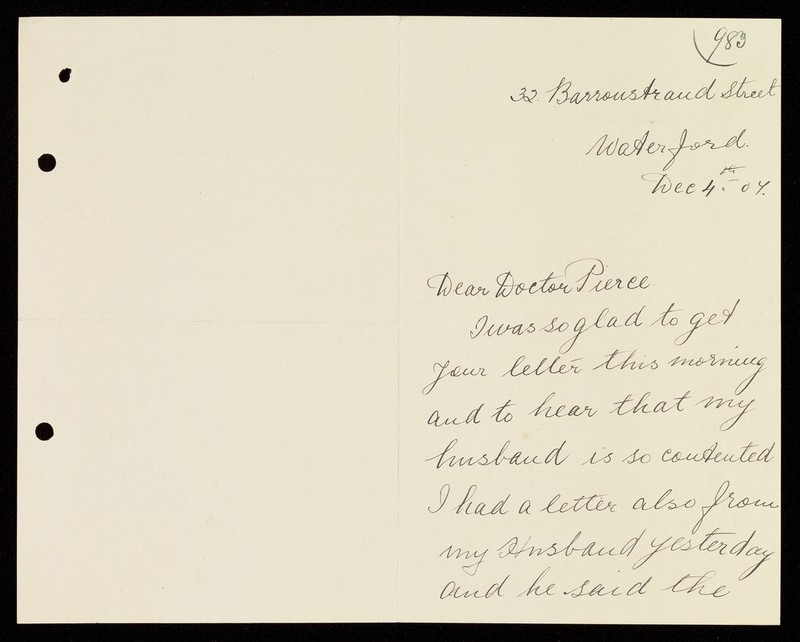 983
32. Barronstrand Street
Waterford.
Dec 4th. 07.
Dear Doctor Pierce
I was so glad to get
your letter this morning
and to hear that my
husband is so contented
I had a letter also from
my Husband yesterday
and he said the